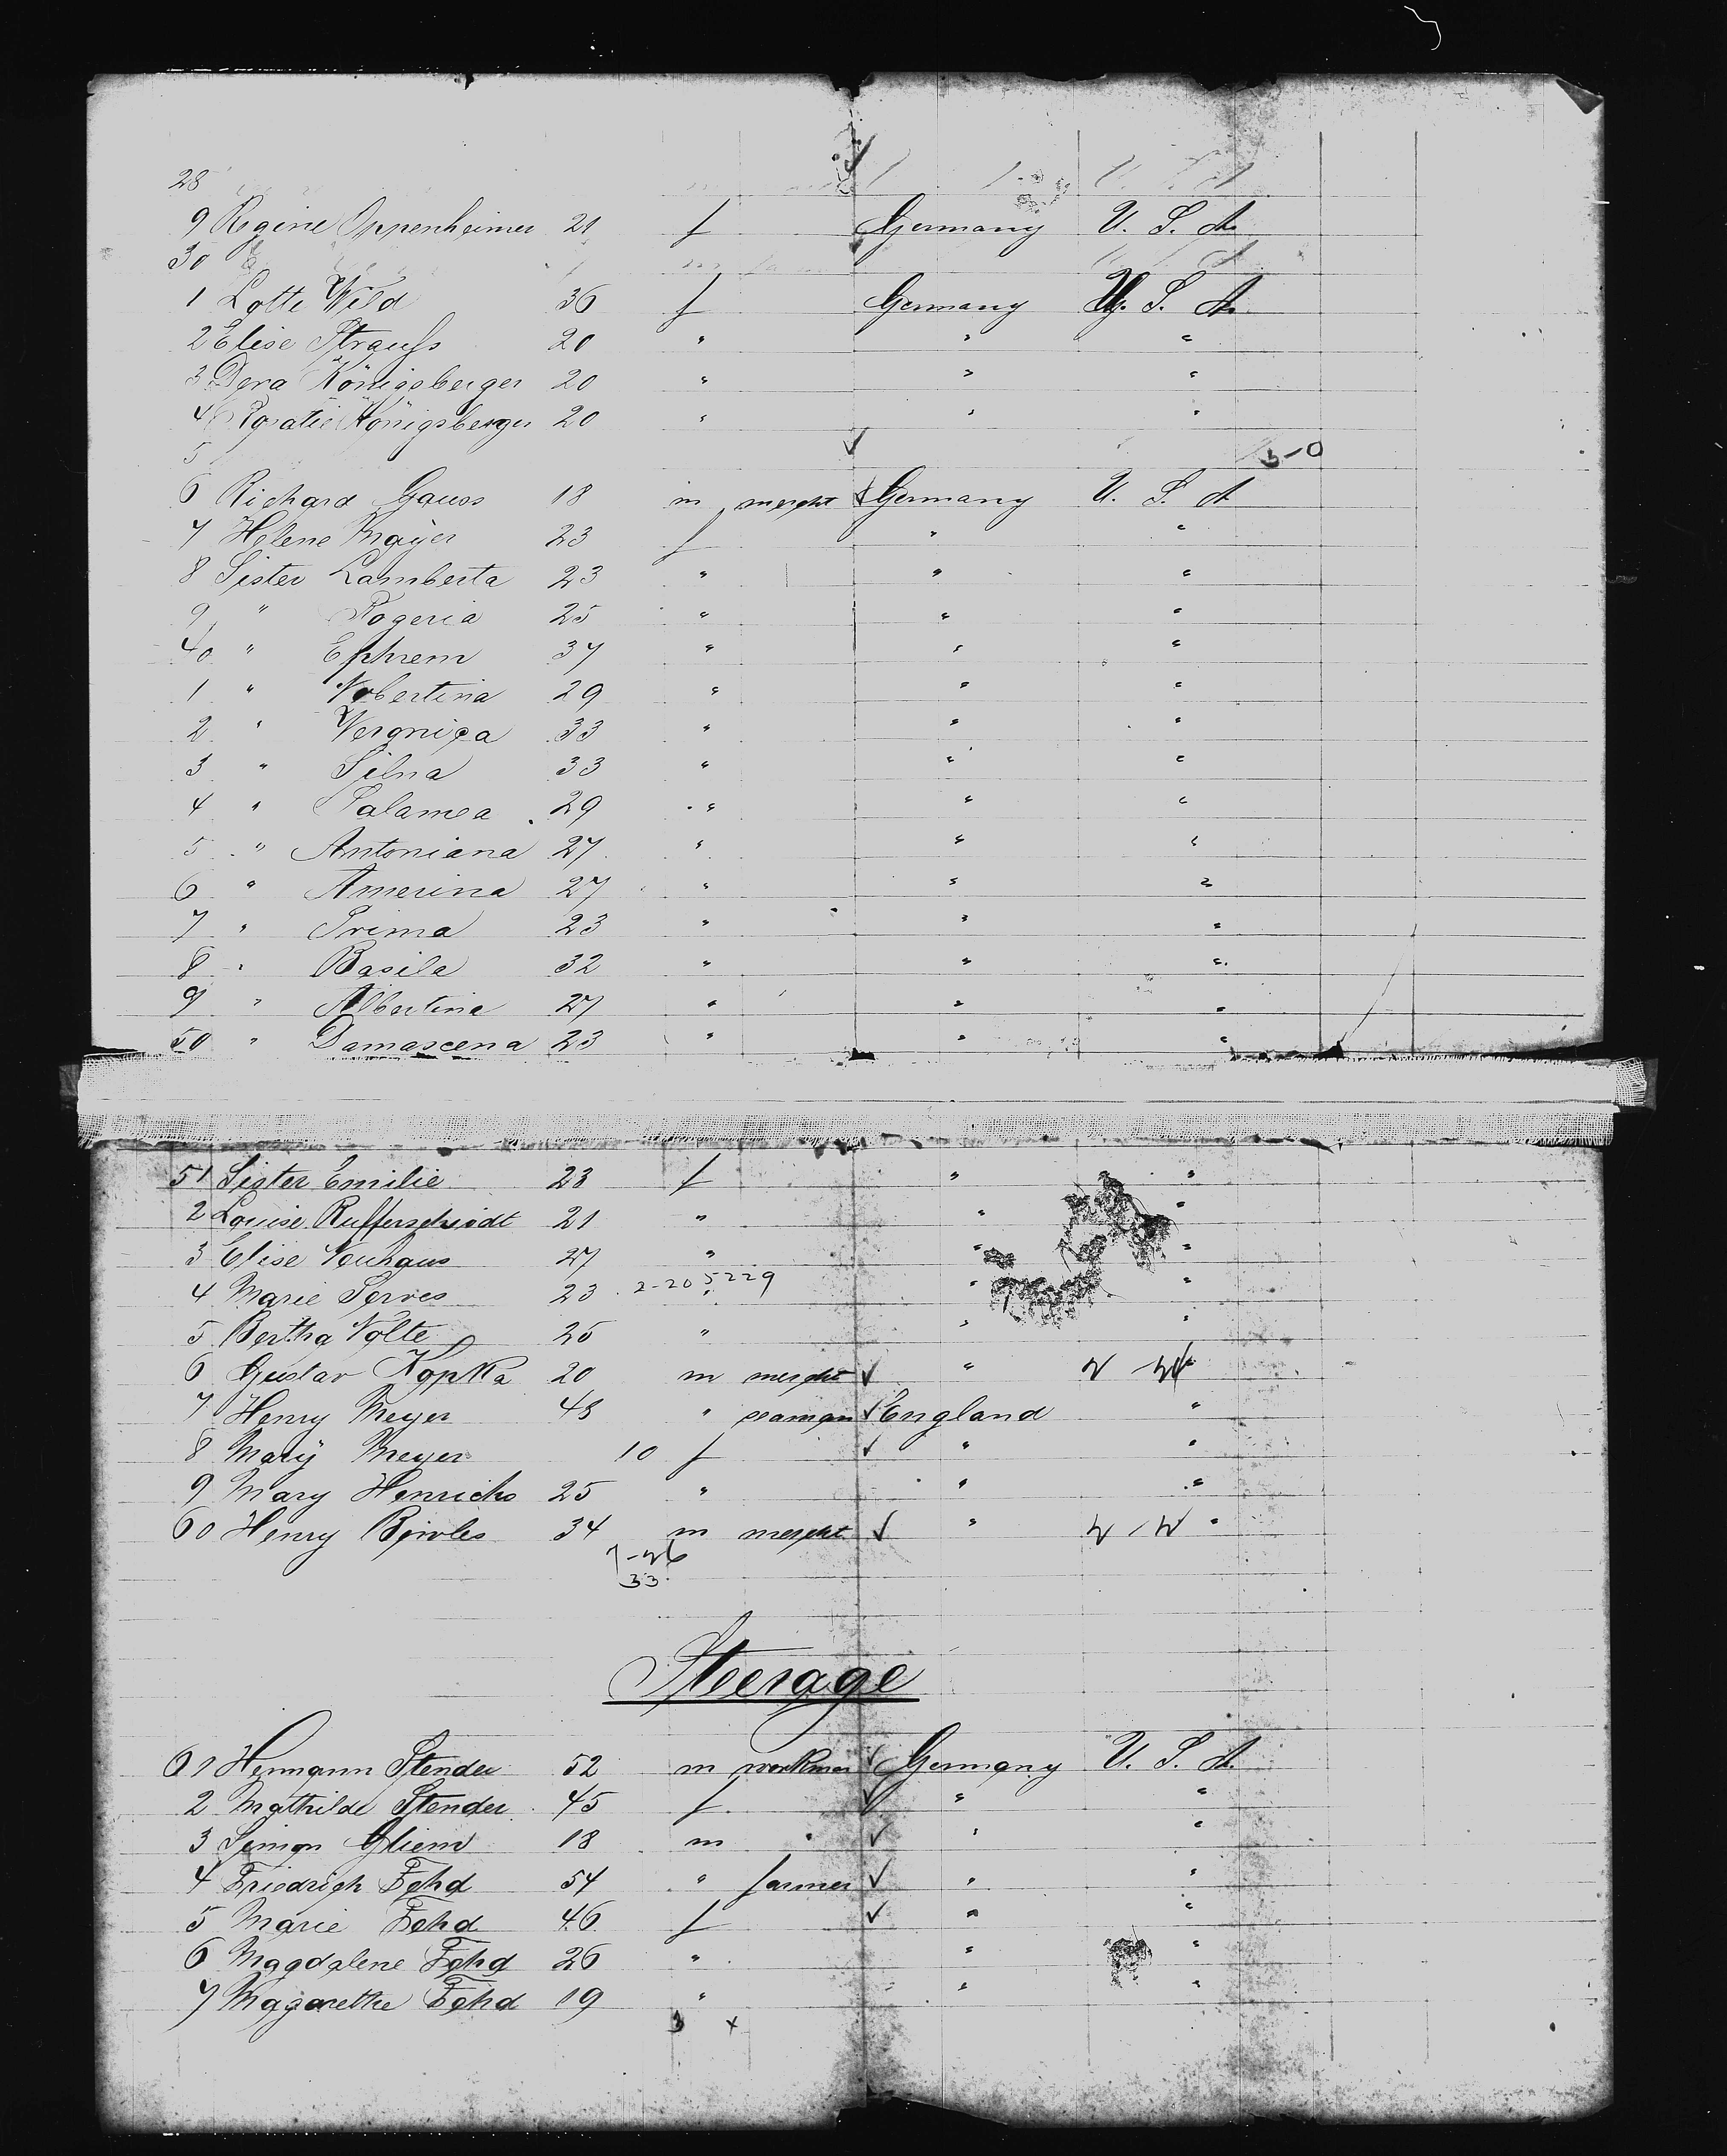 28
9 Regine Oppenheimer 21 f Germany U. S. A.
30
1 Lotte Wild 36 f Germany U. S. A.
2 Elise Strauss 20 " " "
3 Dora Königsberger 20 " " "
4 Rosalie Königsberger 20 " " "
5
3-0
6 Richard Gauss 18 m mercht Germany U. S. A
7 Helene Mayer 23 f " "
8 Sister Lamberta 23 " " "
9 " Rogeria 25 " " "
40 " Ephrem 37 " " "
1 " Nobertina 29 " " "
2 " Veronica 33 " " "
3 " Silna 33 " " "
4 " Salamea 29 " " "
5 " Antoniana 27 " " "
6 " Amerina 27 " " "
7 " Prima 23 " " "
8 " Basila 32 " " "
9 " Albertine 27 " " "
50 " Damascena 23 " " "
51 Sister Emilie 23 f " "
2 Louise 21 " " "
3 Elise Neuhaus 27 " " "
4 Marie Serves 23 2-20 5229 " " "
5 Bertha Nolte 25 " " "
6 Gustav Kopka 20 m mercht ✓ "
7 Henry Meyer 48 " seaman ✓ England "
8 Marÿ Meyer 10 f ✓ " "
9 Mary Henrichs 25 " " "
60 Henry Bowles 34 m mercht ✓ " "
33
Steerage
61 Hermann Stender 52 m workman ✓ Germany U. S. A.
2 Mathilde Stender 45 f ✓ " "
3 Simon Gliem 18 m " ✓ " "
4 Friedrich Fehd 54 " farmer ✓ " "
5 Marie Fehd 46 f ✓ " "
6 Magdalene Fehd 26 " " "
7 Magarethe Fehd 19 " " "
3 x